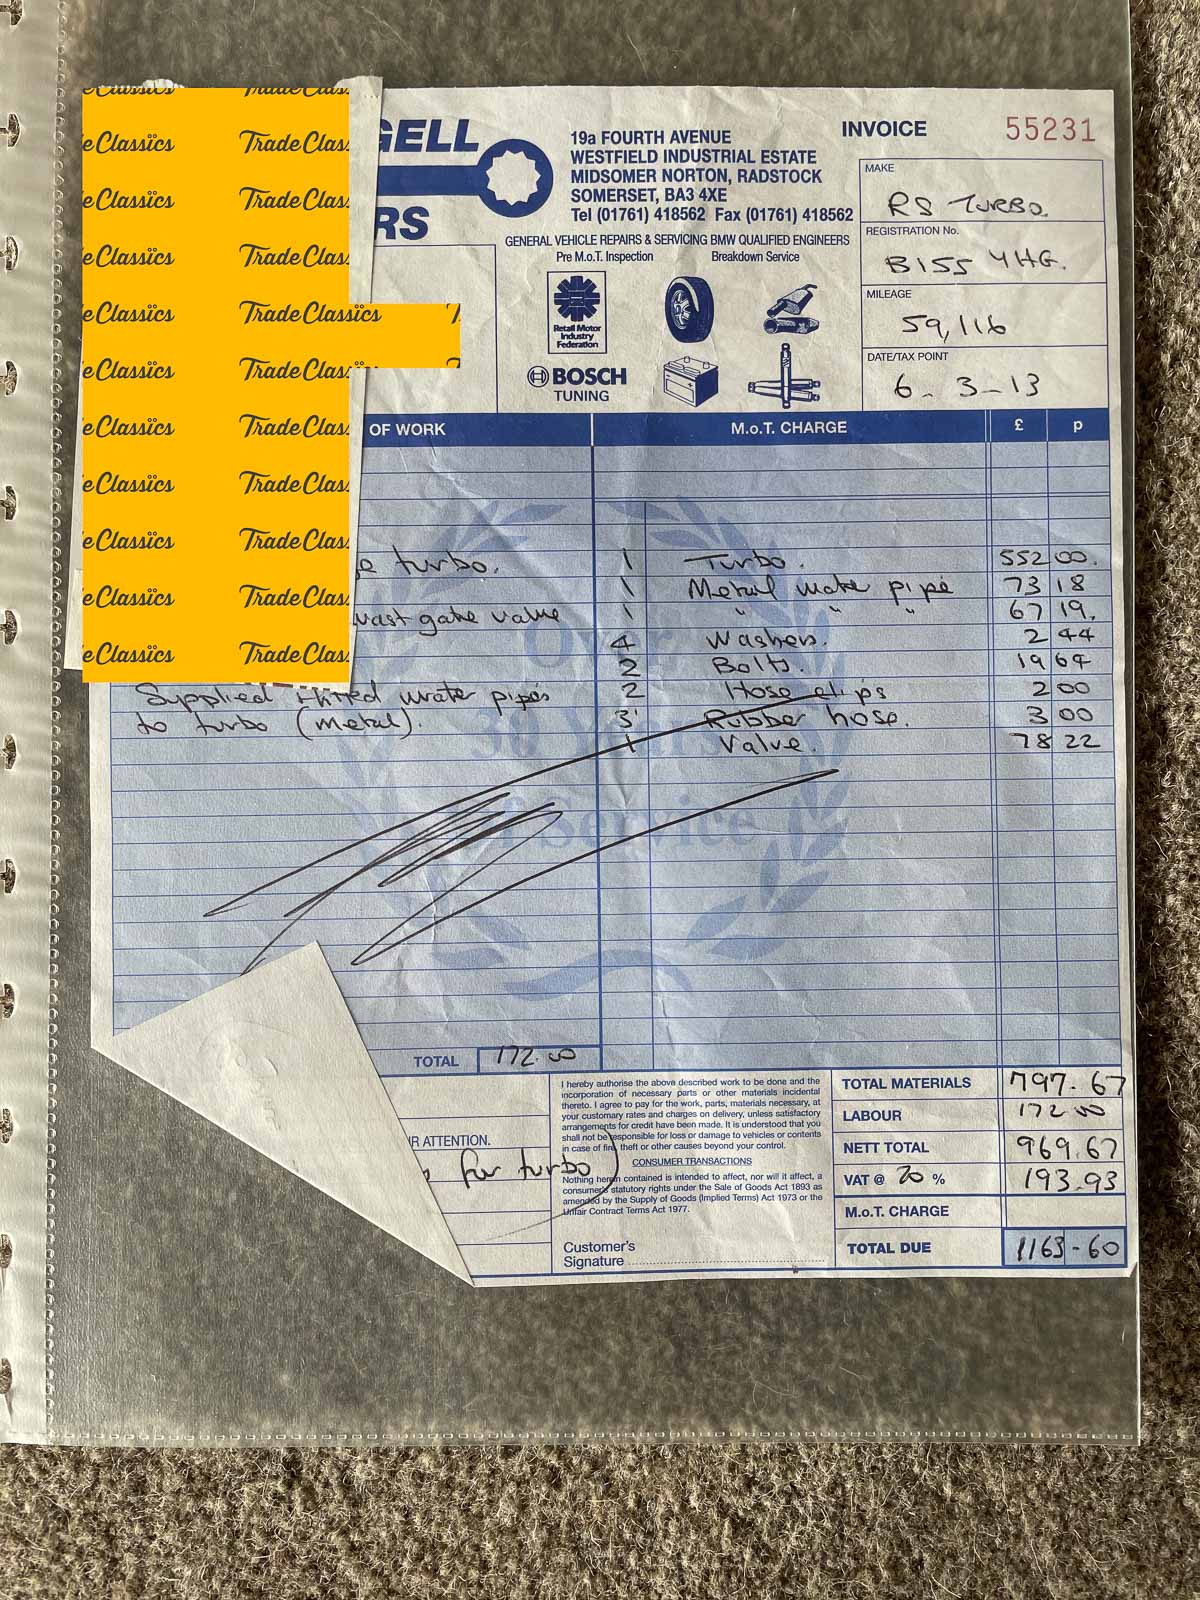 GELL
RS
19a FOURTH AVENUE
WESTFIELD INDUSTRIAL ESTATE
MIDSOMER NORTON, RADSTOCK
SOMERSET, BA3 4XE
Tel (01761) 418562 Fax (01761) 418562
GENERAL VEHICLE REPAIRS & SERVICING BMW QUALIFIED ENGINEERS
Pre M.o.T. Inspection Breakdown Service
Retail Motor
Industry
Federation
BOSCH
TUNING
INVOICE 55231
MAKE
RS TURBO.
REGISTRATION No.
B155 YHG.
MILEAGE
59,116
DATE/TAX POINT
6-3-13
e Classics Trade Clas
e Classics Trade Clas
e Classics Trade Clas
e Classics Trade Clas
e Classics Trade Classics
e Classics Trade Classics
e Classics Trade Clas
e Classics Trade Clas
e Classics Trade Clas
e Classics Trade Clas
e Classics Trade Clas
OF WORK M.o.T. CHARGE £ p
e turbo. 1 Turbo. 552 00.
1 Metal water pipe 73 18
wast gate valve 1 " " " 67 19.
4 Washers. 2 44
2 Bolts. 19 64
Supplied + fitted water pipes 2 Hose clips 2 00
to turbo (metal). 3' Rubber hose. 3 00
1 Valve. 78 22
Over
30 Years
of Service
TOTAL 172.00
R ATTENTION.
for turbo)
I hereby authorise the above described work to be done and the
incorporation of necessary parts or other materials incidental
thereto. I agree to pay for the work, parts, materials necessary, at
your customary rates and charges on delivery, unless satisfactory
arrangements for credit have been made. It is understood that you
shall not be responsible for loss or damage to vehicles or contents
in case of fire, theft or other causes beyond your control.
CONSUMER TRANSACTIONS
Nothing herein contained is intended to affect, nor will it affect, a
consumer's statutory rights under the Sale of Goods Act 1893 as
amended by the Supply of Goods (Implied Terms) Act 1973 or the
Unfair Contract Terms Act 1977.
Customer's
Signature
TOTAL MATERIALS 797.67
LABOUR 172 00
NETT TOTAL 969.67
VAT @ 20 % 193.93
M.o.T. CHARGE
TOTAL DUE 1163-60